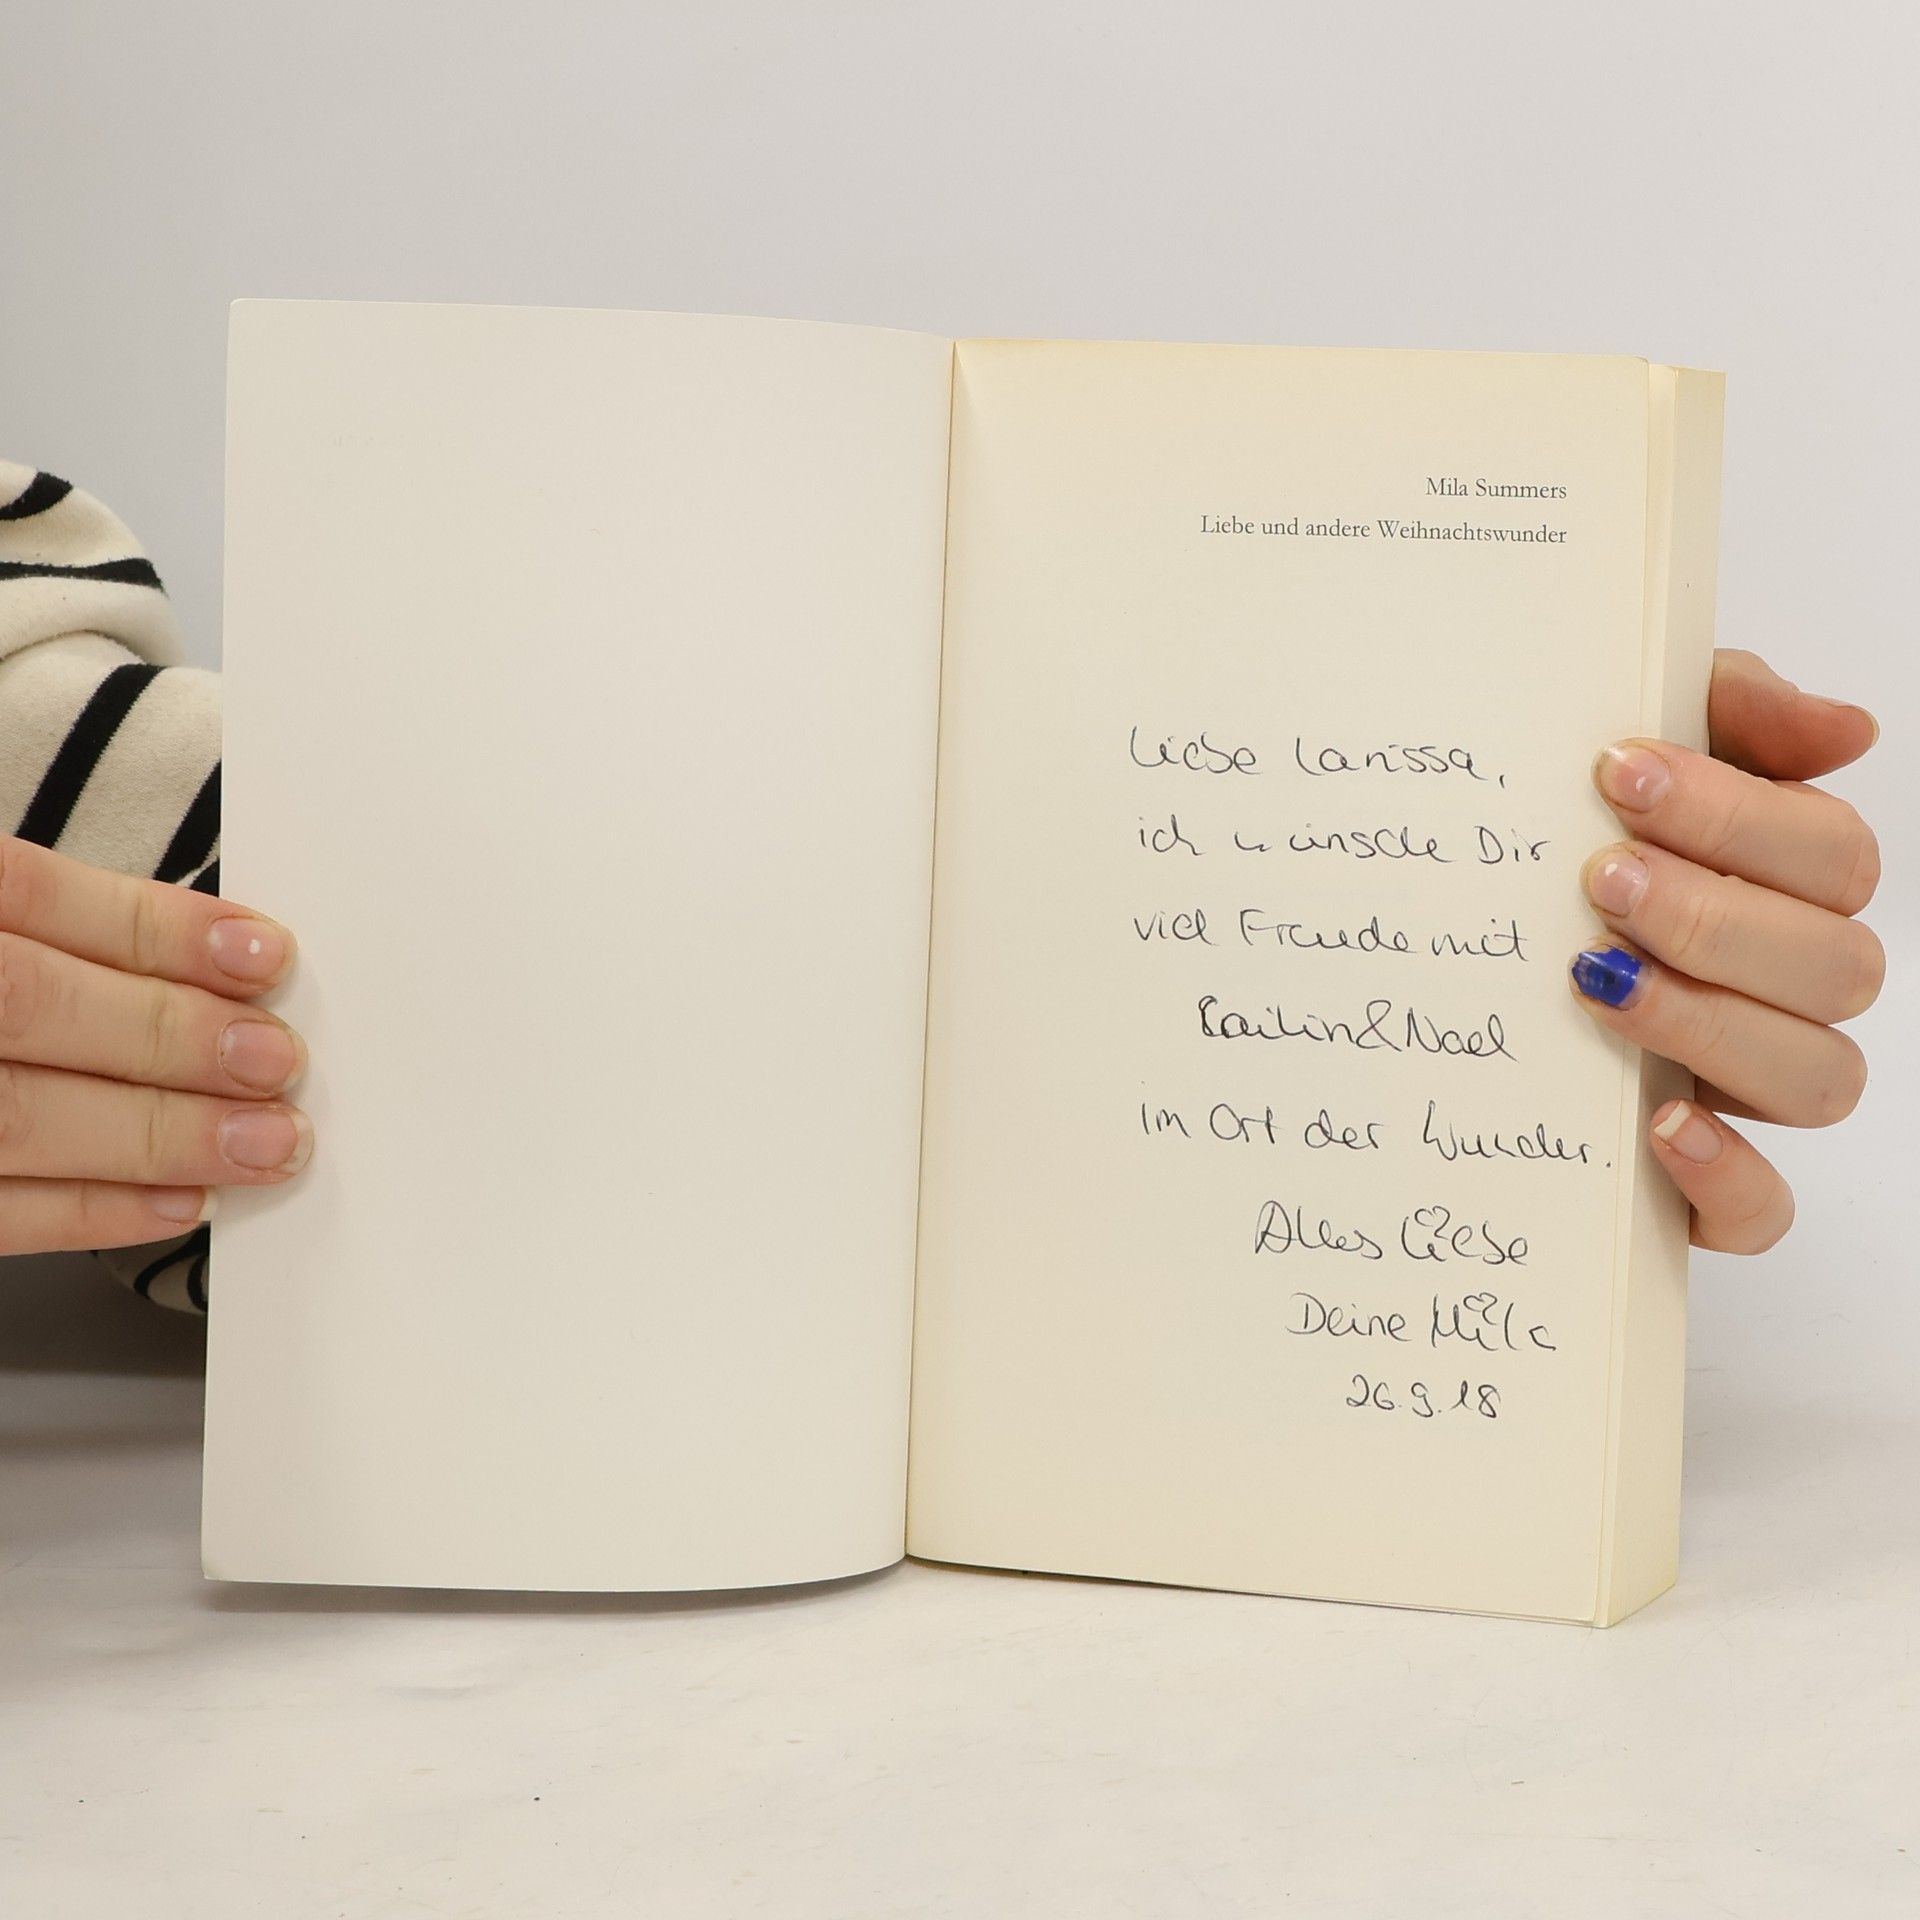 Mila Summers
Liebe und andere Weihnachtswunder
Liebe Larissa,
ich wünsche Dir
viel Freude mit
Kaitlin & Nael
im Ort der Wunder.
Alles Liebe
Deine Mila
26.9.18